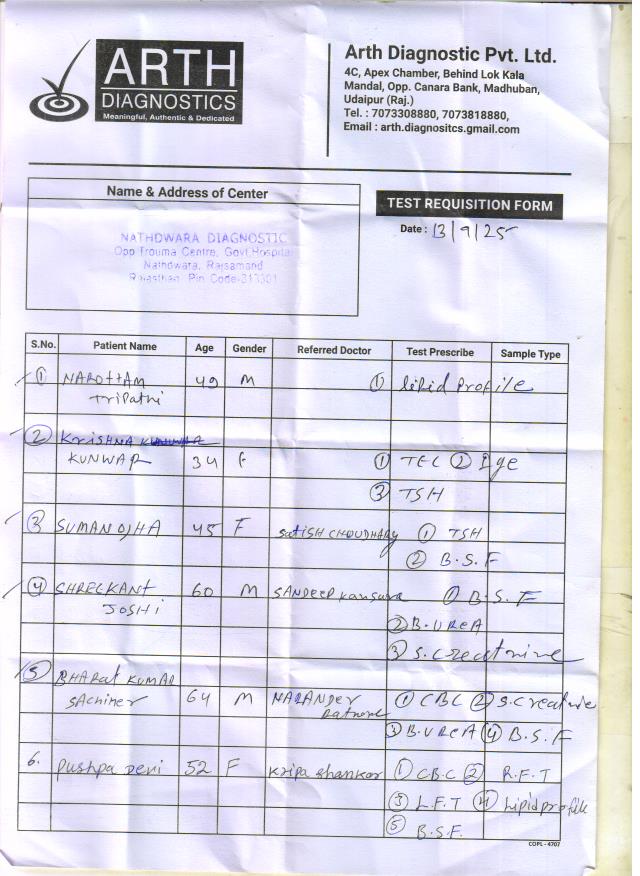 ARTH
DIAGNOSTICS
Meaningful, Authentic & Dedicated
Arth Diagnostic Pvt. Ltd.
4C, Apex Chamber, Behind Lok Kala
Mandal, Opp. Canara Bank, Madhuban,
Udaipur (Raj.)
Tel. : 7073308880, 7073818880,
Email : arth.diagnositcs.gmail.com
Name & Address of Center
NATHDWARA DIAGNOSTIC
Opp Trouma Centre, Govt.Hospital
Nathdwara, Rajsamand
Rajasthan, Pin Code-313301
TEST REQUISITION FORM
Date : 13/9/25
S.No. Patient Name Age Gender Referred Doctor Test Prescribe Sample Type
① NAROTTAM 49 M ① lipid profile
TRIPATHI
② KRISHNA
KUNWAR 34 F ① TEC ② Ige
③ TSH
③ SUMAN OJHA 45 F SATISH CHOUDHARY ① TSH
② B.S.F
④ SHREEKANT 60 M SANDEEP ① B.S.F
JOSHI
② B.UREA
③ S.Creatnine
⑤ BHARAT KUMAR
64 M NARANDER ① CBC ② S.Creatine
③ B.UREA ④ B.S.F
6. Pushpa Devi 52 F Kripa Shankar ① C.B.C ② R.F.T
③ L.F.T ④ Lipid profile
⑤ B.S.F.
COPL - 4707